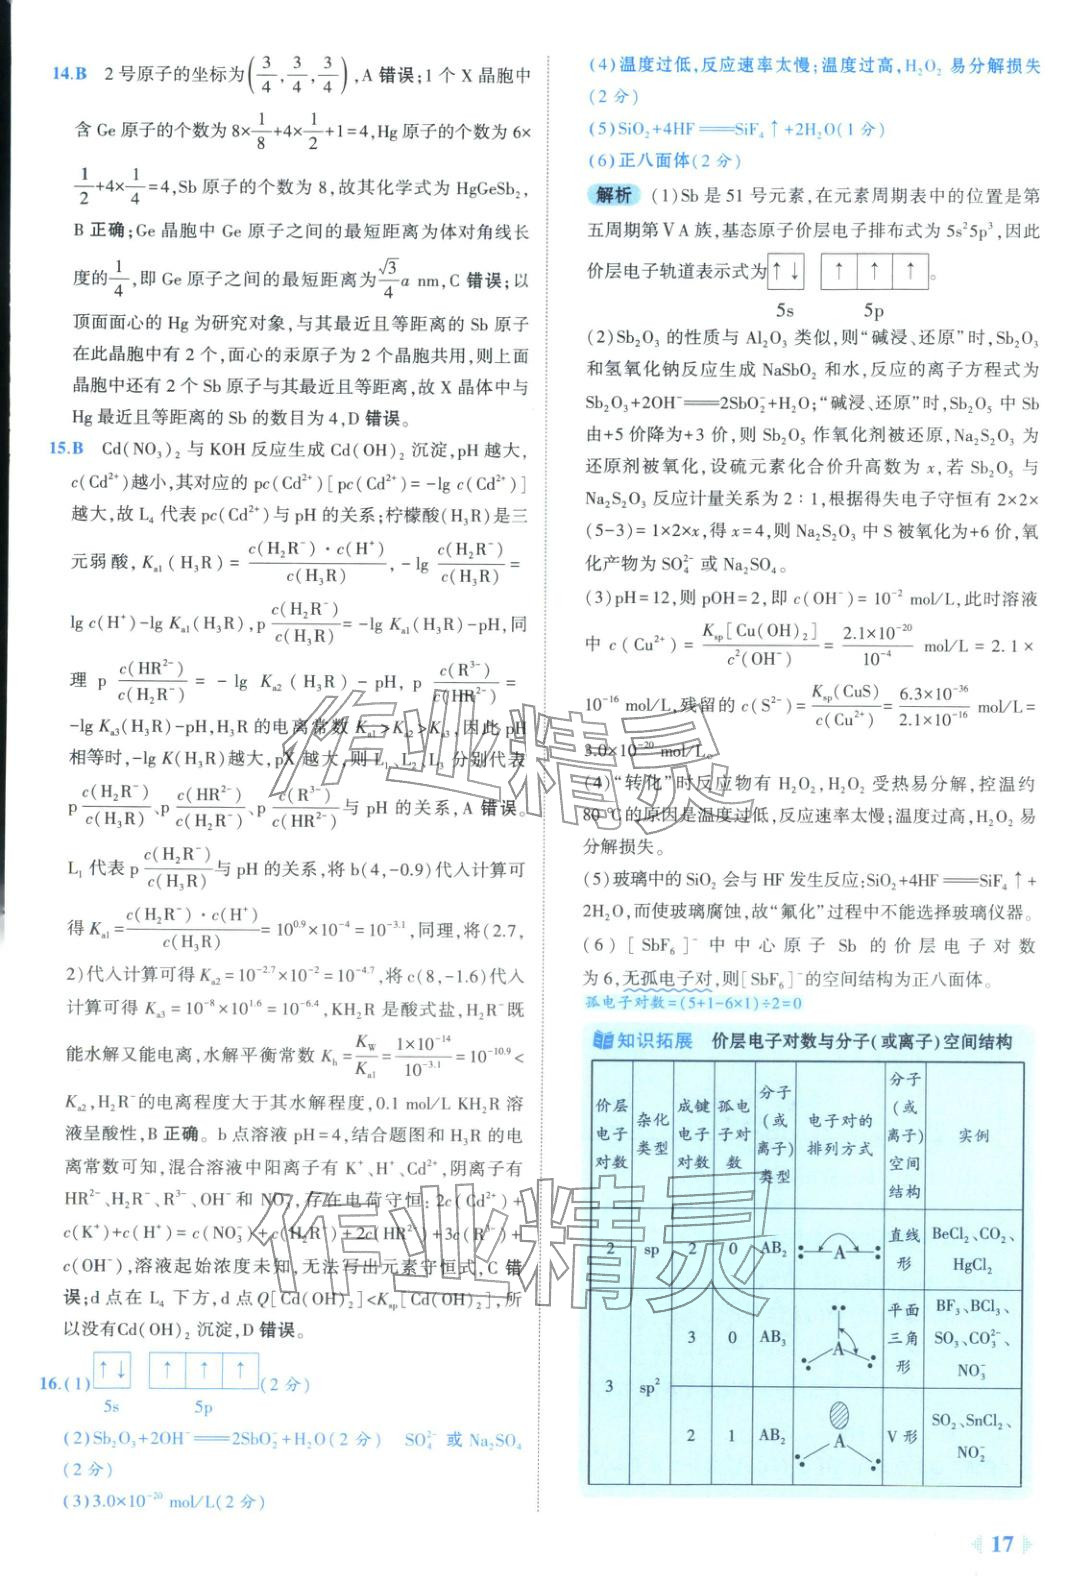 14.B 2 号原子的坐标为(3/4,3/4,3/4),A 错误;1 个 X 晶胞中
含 Ge 原子的个数为 8×1/8+4×1/2+1=4,Hg 原子的个数为 6×
1/2+4×1/4=4,Sb 原子的个数为 8,故其化学式为 HgGeSb₂,
B 正确;Ge 晶胞中 Ge 原子之间的最短距离为体对角线长
度的1/4,即 Ge 原子之间的最短距离为√3/4 a nm,C 错误;以
顶面面心的 Hg 为研究对象,与其最近且等距离的 Sb 原子
在此晶胞中有 2 个,面心的汞原子为 2 个晶胞共用,则上面
晶胞中还有 2 个 Sb 原子与其最近且等距离,故 X 晶体中与
Hg 最近且等距离的 Sb 的数目为 4,D 错误。
15.B Cd(NO₃)₂ 与 KOH 反应生成 Cd(OH)₂ 沉淀,pH 越大,
c(Cd²⁺)越小,其对应的 pc(Cd²⁺)[pc(Cd²⁺)=-lg c(Cd²⁺)]
越大,故 L₄ 代表 pc(Cd²⁺)与 pH 的关系;柠檬酸(H₃R)是三
元弱酸,Kₐ₁(H₃R)=c(H₂R⁻)·c(H⁺)/c(H₃R),-lg c(H₂R⁻)/c(H₃R)=
lg c(H⁺)-lg Kₐ₁(H₃R),p c(H₂R⁻)/c(H₃R)=-lg Kₐ₁(H₃R)-pH,同
理 p c(HR²⁻)/c(H₂R⁻)=-lg Kₐ₂(H₃R)-pH,p c(R³⁻)/c(HR²⁻)=
-lg Kₐ₃(H₃R)-pH,H₃R 的电离常数 Kₐ₁>Kₐ₂>Kₐ₃,因此 pH
相等时,-lg K(H₃R)越大,pX 越大,则 L₁、L₂、L₃ 分别代表
p c(H₂R⁻)/c(H₃R)、p c(HR²⁻)/c(H₂R⁻)、p c(R³⁻)/c(HR²⁻)与 pH 的关系,A 错误。
L₁ 代表 p c(H₂R⁻)/c(H₃R)与 pH 的关系,将 b(4,-0.9)代入计算可
得 Kₐ₁=c(H₂R⁻)·c(H⁺)/c(H₃R)=10⁰·⁹×10⁻⁴=10⁻³·¹,同理,将(2.7,
2)代入计算可得 Kₐ₂=10⁻²·⁷×10⁻²=10⁻⁴·⁷,将 c(8,-1.6)代入
计算可得 Kₐ₃=10⁻⁸×10¹·⁶=10⁻⁶·⁴,KH₂R 是酸式盐,H₂R⁻既
能水解又能电离,水解平衡常数 Kₕ=K_W/Kₐ₁=1×10⁻¹⁴/10⁻³·¹=10⁻¹⁰·⁹<
Kₐ₂,H₂R⁻的电离程度大于其水解程度,0.1 mol/L KH₂R 溶
液呈酸性,B 正确。b 点溶液 pH=4,结合题图和 H₃R 的电
离常数可知,混合溶液中阳离子有 K⁺、H⁺、Cd²⁺,阴离子有
HR²⁻、H₂R⁻、R³⁻、OH⁻和 NO₃⁻,存在电荷守恒:2c(Cd²⁺)+
c(K⁺)+c(H⁺)=c(NO₃⁻)+c(H₂R⁻)+2c(HR²⁻)+3c(R³⁻)+
c(OH⁻),溶液起始浓度未知,无法写出元素守恒式,C 错
误;d 点在 L₄ 下方,d 点Q[Cd(OH)₂]<Kₛₚ[Cd(OH)₂],所
以没有Cd(OH)₂ 沉淀,D 错误。
16.(1)↑↓ ↑ ↑ ↑(2 分)
5s 5p
(2)Sb₂O₃+2OH⁻══2SbO₂⁻+H₂O(2 分) SO₄²⁻ 或 Na₂SO₄
(2 分)
(3)3.0×10⁻²⁰ mol/L(2 分)
(4)温度过低,反应速率太慢;温度过高,H₂O₂ 易分解损失
(2 分)
(5)SiO₂+4HF══SiF₄↑+2H₂O(1 分)
(6)正八面体(2 分)
解析 (1)Sb 是 51 号元素,在元素周期表中的位置是第
五周期第ⅤA 族,基态原子价层电子排布式为 5s²5p³,因此
价层电子轨道表示式为↑↓ ↑ ↑ ↑。
5s 5p
(2)Sb₂O₃ 的性质与 Al₂O₃ 类似,则“碱浸、还原”时,Sb₂O₃
和氢氧化钠反应生成 NaSbO₂ 和水,反应的离子方程式为
Sb₂O₃+2OH⁻══2SbO₂⁻+H₂O;“碱浸、还原”时,Sb₂O₅ 中 Sb
由+5 价降为+3 价,则 Sb₂O₅ 作氧化剂被还原,Na₂S₂O₃ 为
还原剂被氧化,设硫元素化合价升高数为 x,若 Sb₂O₅ 与
Na₂S₂O₃ 反应计量关系为 2∶1,根据得失电子守恒有 2×2×
(5-3)=1×2×x,得 x=4,则 Na₂S₂O₃ 中 S 被氧化为+6 价,氧
化产物为 SO₄²⁻ 或 Na₂SO₄。
(3)pH=12,则 pOH=2,即 c(OH⁻)=10⁻² mol/L,此时溶液
中 c(Cu²⁺)=Kₛₚ[Cu(OH)₂]/c²(OH⁻)=2.1×10⁻²⁰/10⁻⁴ mol/L=2.1×
10⁻¹⁶ mol/L,残留的 c(S²⁻)=Kₛₚ(CuS)/c(Cu²⁺)=6.3×10⁻³⁶/2.1×10⁻¹⁶ mol/L=
3.0×10⁻²⁰ mol/L。
(4)“转化”时反应物有 H₂O₂,H₂O₂ 受热易分解,控温约
80 ℃的原因是温度过低,反应速率太慢;温度过高,H₂O₂ 易
分解损失。
(5)玻璃中的 SiO₂ 会与 HF 发生反应:SiO₂+4HF══SiF₄↑+
2H₂O,而使玻璃腐蚀,故“氟化”过程中不能选择玻璃仪器。
(6)[SbF₆]⁻中中心原子 Sb 的价层电子对数
为 6,无孤电子对,则[SbF₆]⁻的空间结构为正八面体。
孤电子对数=(5+1-6×1)÷2=0
知识拓展 价层电子对数与分子(或离子)空间结构
价层电子对数 杂化类型 成键电子对数 孤电子对数 分子(或离子)类型 电子对的排列方式 分子(或离子)空间结构 实例
2 sp 2 0 AB₂ A 直线形 BeCl₂、CO₂、HgCl₂
3 sp² 3 0 AB₃ A 平面三角形 BF₃、BCl₃、SO₃、CO₃²⁻、NO₃⁻
2 1 AB₂ A V 形 SO₂、SnCl₂、NO₂⁻
17
作业精灵
作业精灵